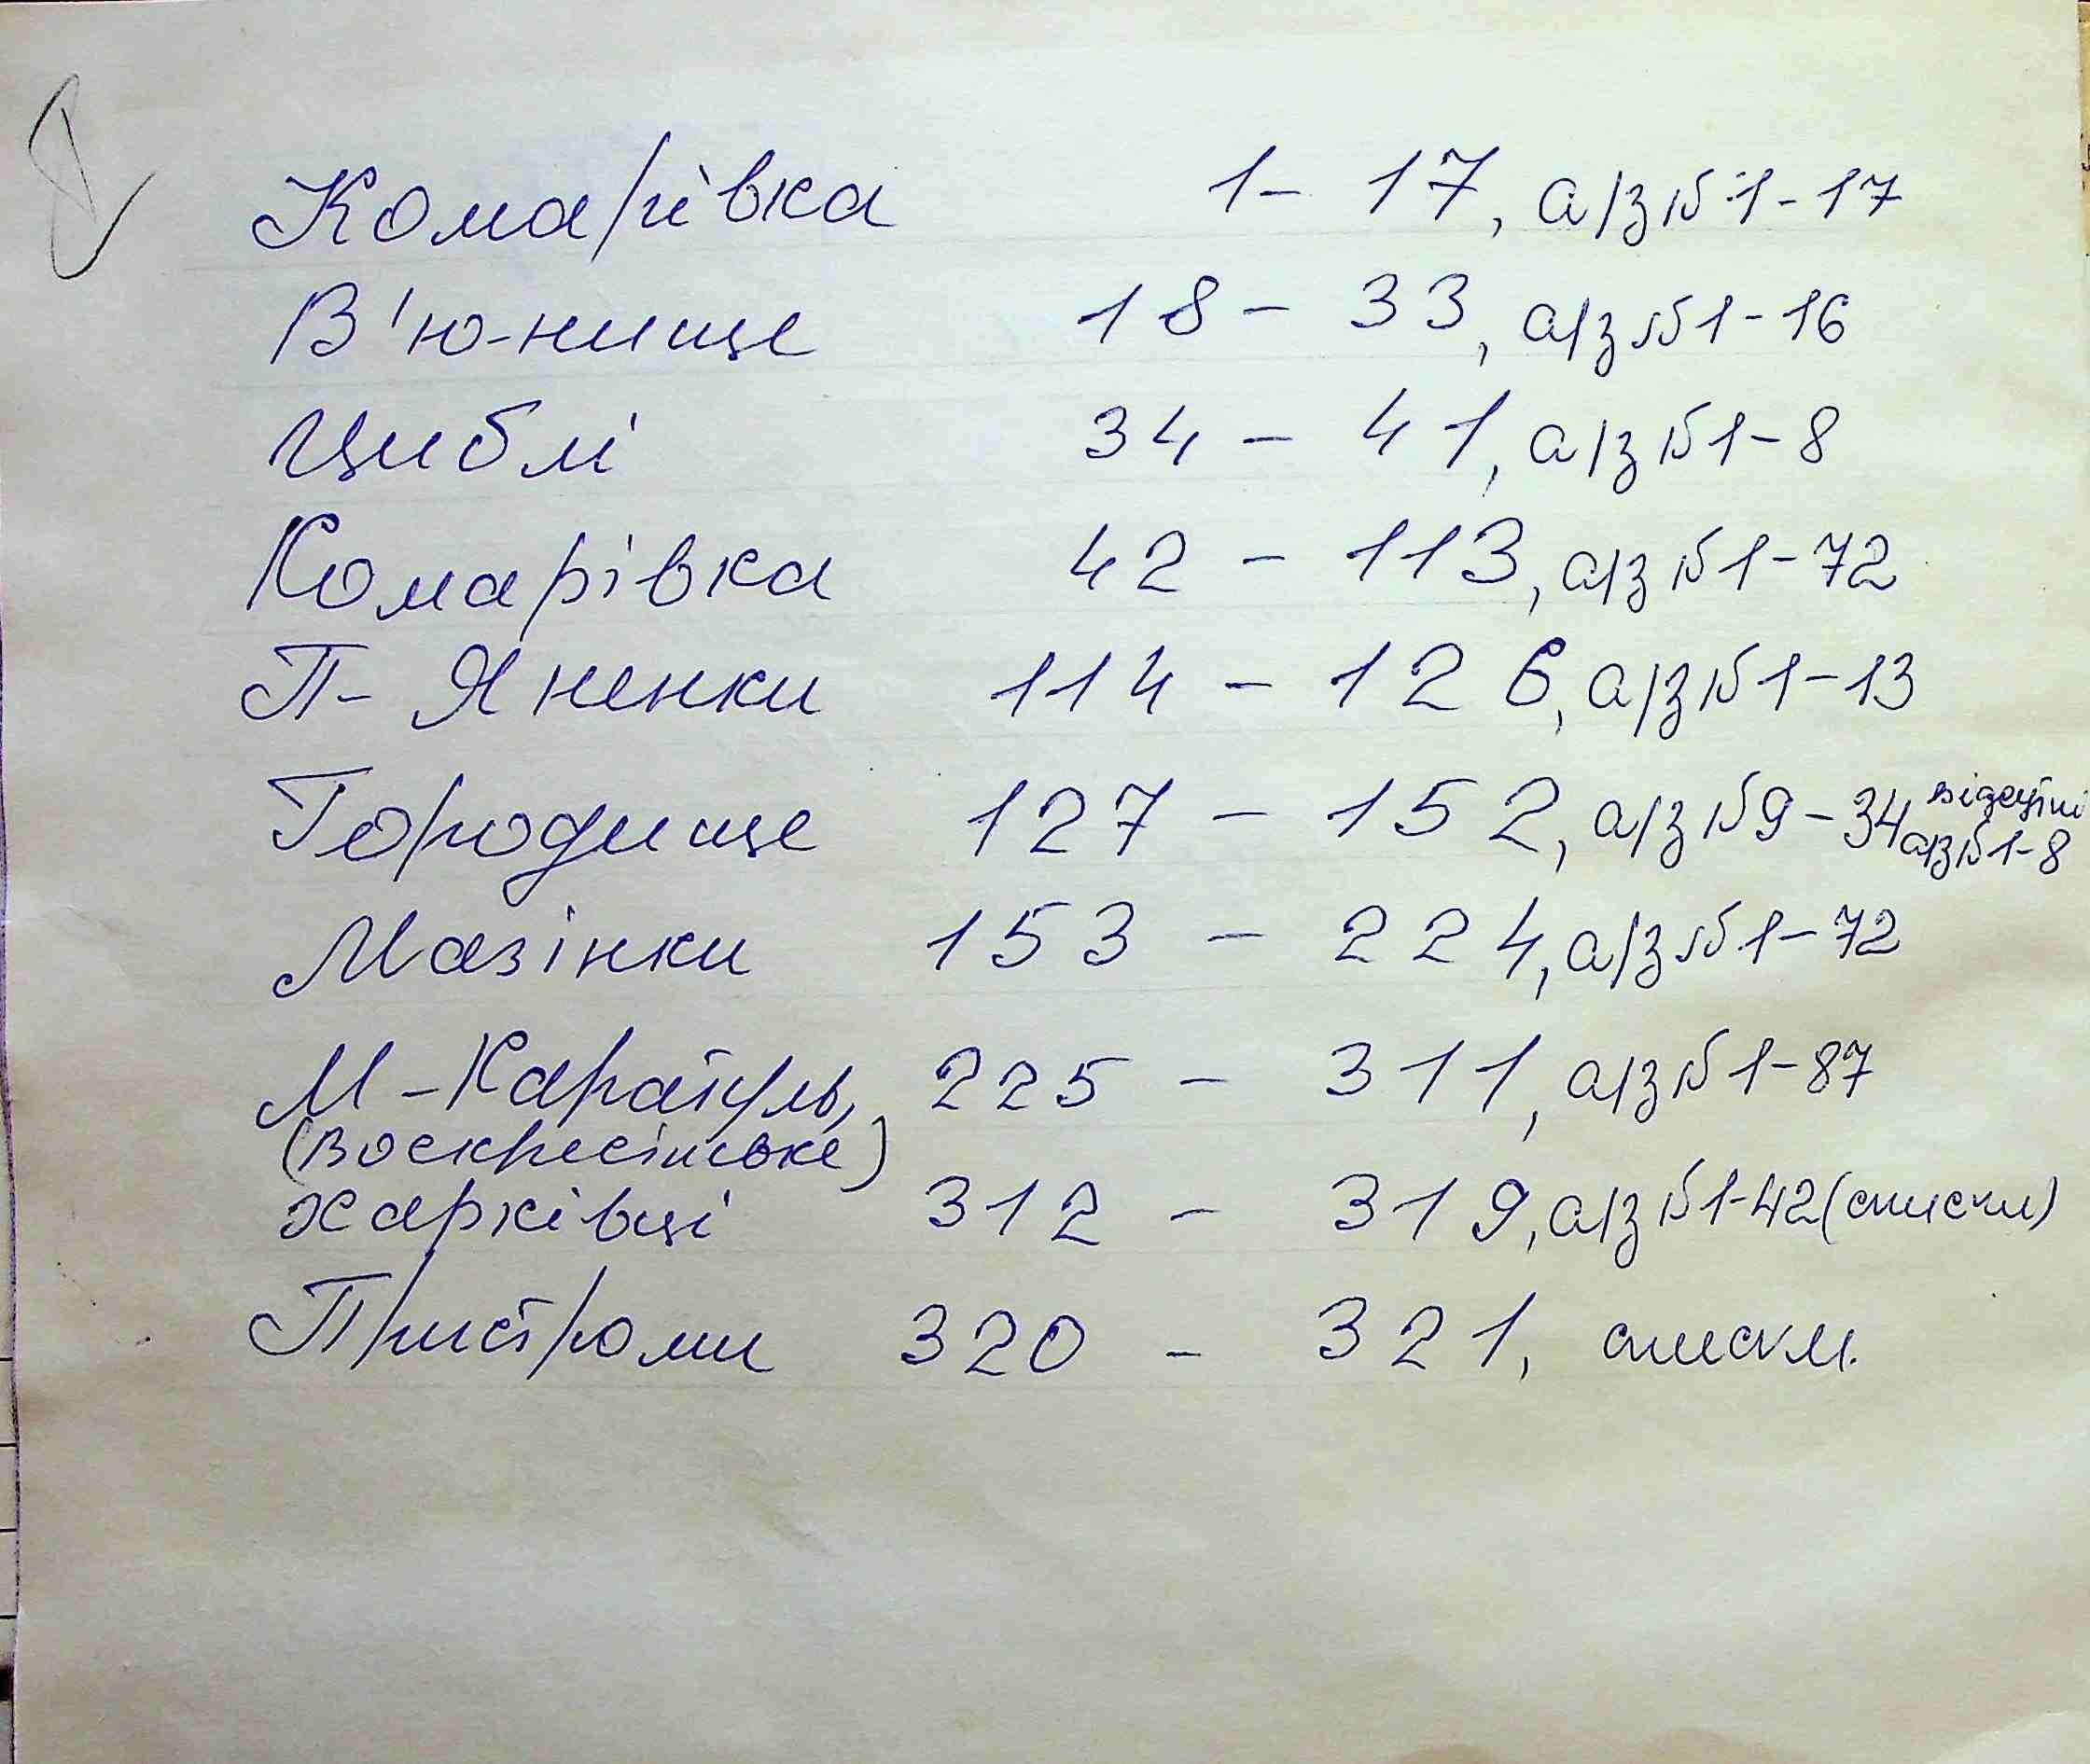 Комарівка 1 - 17, а/з №1-17
В'ю-нище 18 - 33, а/з №1-16
Циблі 34 - 41, а/з №1-8
Комарівка 42 - 113, а/з №1-72
П- Яненки 114 - 126, а/з №1-13
Городище 127 - 152, а/з №9-34 відсутні а/з №1-8
Мазінки 153 - 224, а/з №1-72
М-Каратуль, 225 - 311, а/з №1-87
(Воскресінське)
Харківці 312 - 319, а/з №1-42 (списки)
Пристроми 320 - 321, списки.